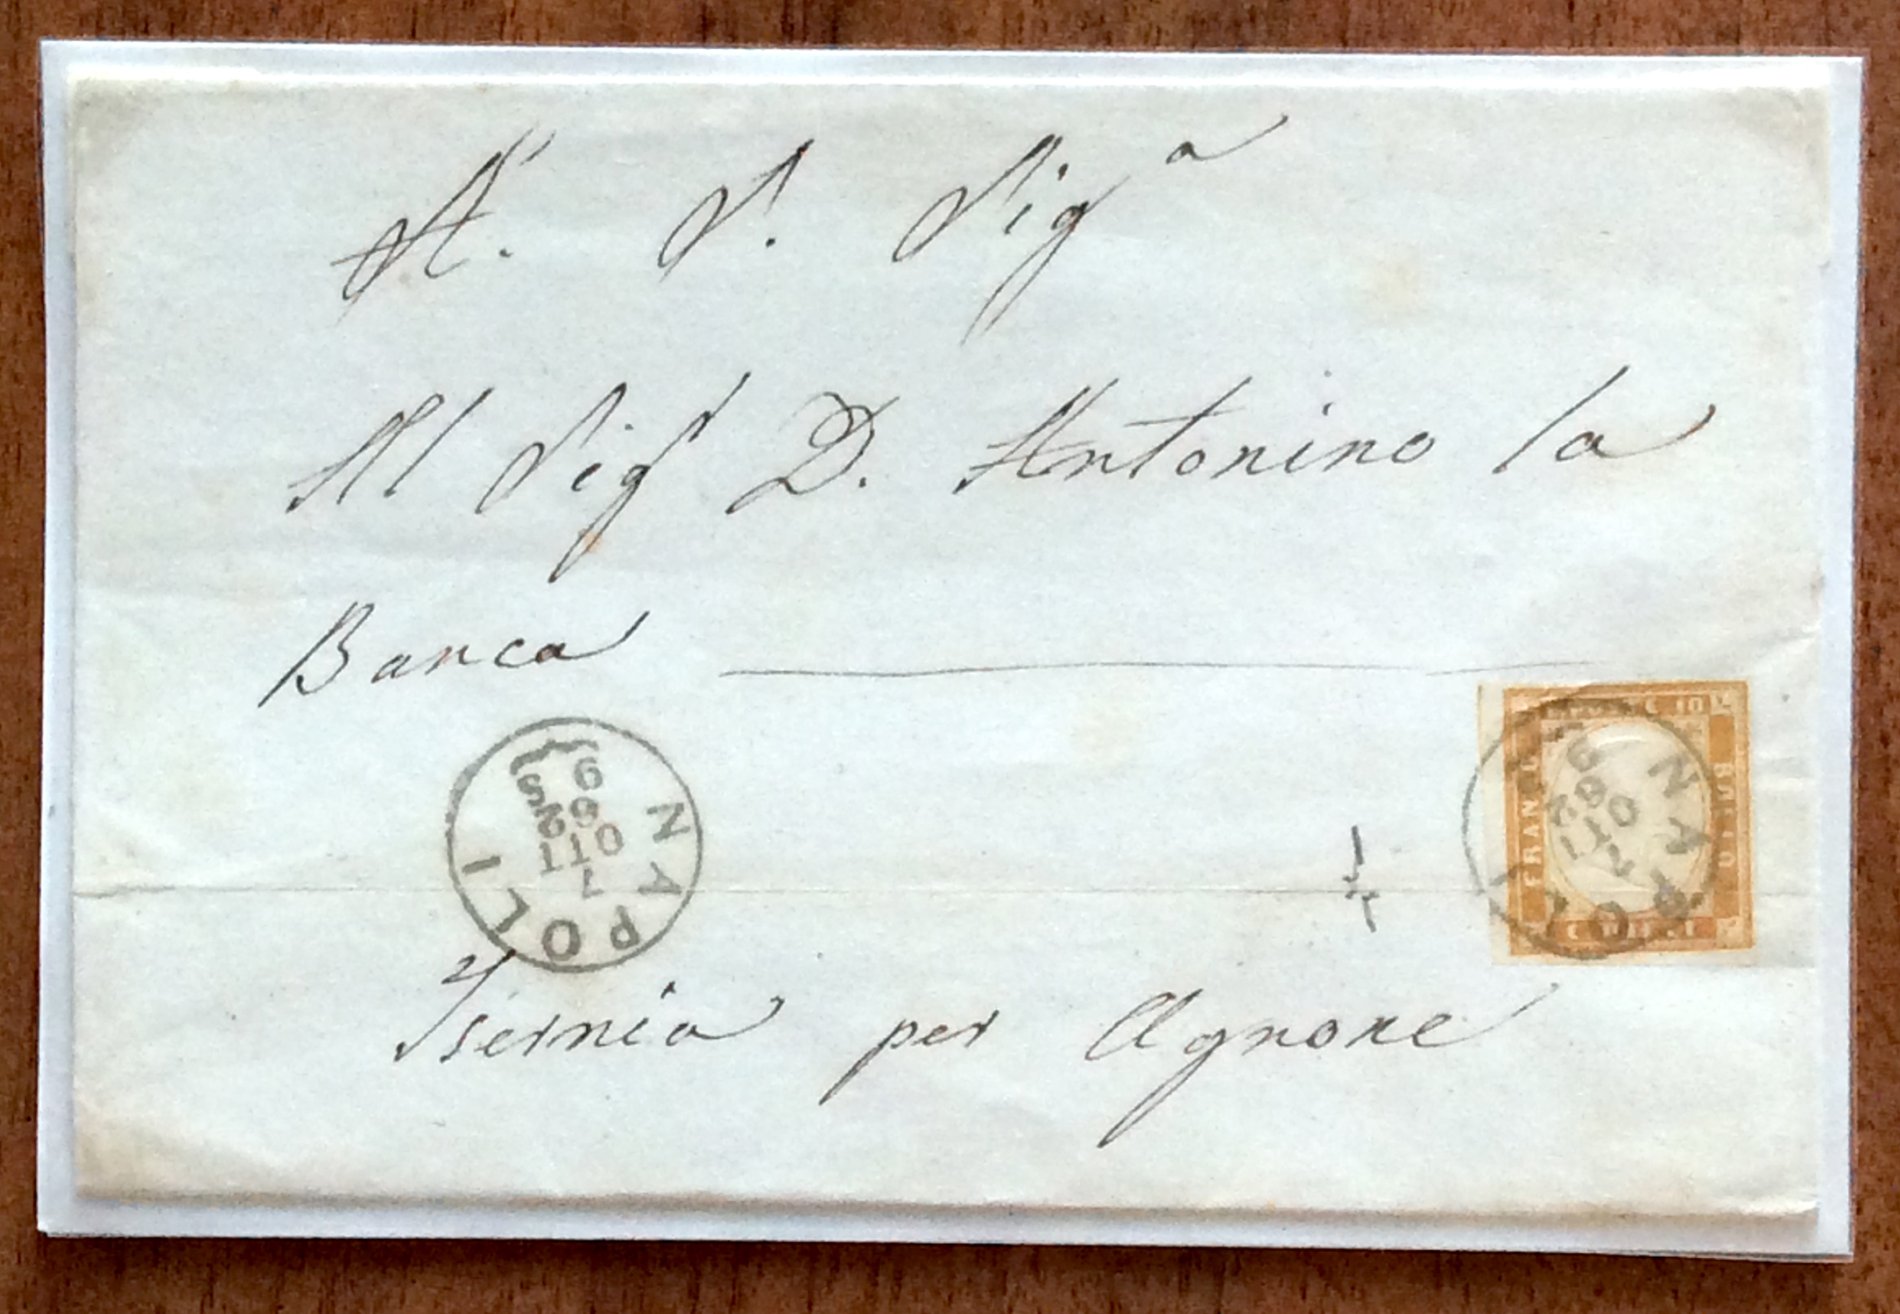 A. S. Sig.a
Al Sigr D. Antonino la
Banca
NAPOLI
7 OTT
62
9
NAPOLI
7 OTT
62
9
FRANCO BOLLO
C. DIECI
POSTE C 10
Isernia per Agnone